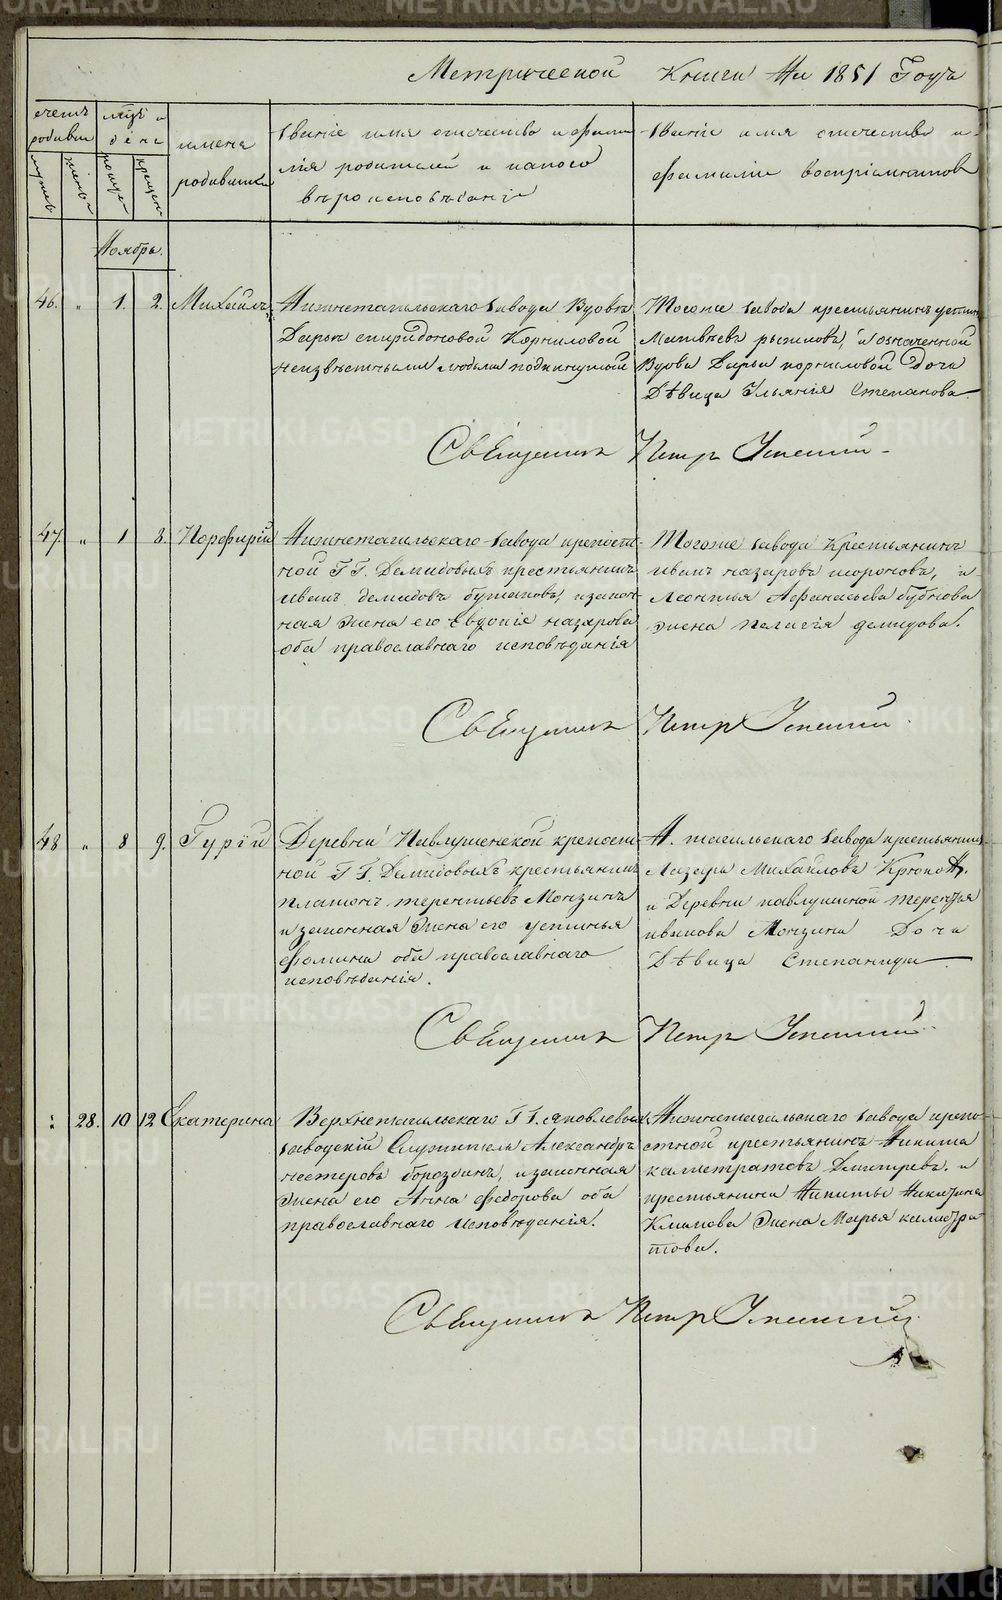 Метрической Книги На 1851 Годъ
счетъ родивш
муж
женъ
мѣц и день
рожде
крещен
имена родивших
Званіе имя отечество и фами
лія родителей и какого
вѣроисповѣданія
Званіе имя отечество и
фамилія воспріемниковъ
Ноябрь.
46. " 1. 2. Михаилъ.
Нижнетагильскаго завода Вдовѣ
Дарьи спиридоновой Корниловой
неизвѣстными людьми подкинутый
Тогоже завода крестьянинъ устинъ
Матвѣевъ рыжиковъ, и означенной
Вдовы Дарьи корниловой Дочь
Дѣвица Ульянія Степанова
Священникъ Петръ Успенскій
47. " 1 3. Порфирій
Нижнетагильскаго завода крепост
ной Г.Г. Демидовыхъ крестьянинъ
иванъ демидовъ бутаковъ, изакон
ная жена его Евдокія назарова
оба православнаго исповѣданія
Тогоже завода Крестьянинъ
иванъ назаровъ шороховъ, и
Леонтья Афанасьева бубнова
жена пелагія демидова.
Священникъ Петръ Успенскій
48 " 8 9. Гурій
Деревни Павлушенской крепост
ной Г.Г. Демидовыхъ крестьянинъ
платонъ терентьевъ Монзинъ
изаконная жена его устинья
фомина оба православнаго
исповѣданія.
Н. тагильскаго завода крестьянинъ
Лазарь Михайловъ Крюковъ.
и Деревни павлушиной терентья
иванова Монзина Дочь
Дѣвица Степанида
Священникъ Петръ Успенскій
: 28. 10 12 Екатерина
Верхнетагильскаго Г.Г. яковлевыхъ
заводскій Служитель Александръ
нестеровъ бороздинъ, изаконная
жена его Анна федорова оба
православнаго исповѣданія.
Нижнетагильскаго завода крепо
стной крестьянинъ Никита
каллистратовъ Дмитріевъ. и
крестьянина Никиты Никитина
Климова жена Марья калистра
това.
Священникъ Петръ Успенскій
METRIKI.GASO-URAL.RU